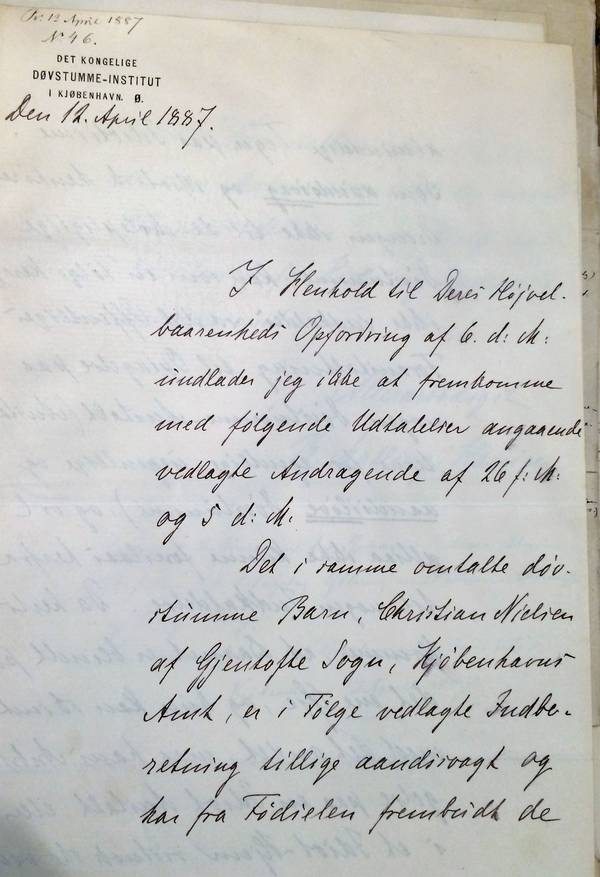 Pr: 12 April 1887
No 46.
DET KONGELIGE
DØVSTUMME-INSTITUT
I KJØBENHAVN. Ø.
Den 12. April 1887.
I Henhold til Deres Højvel-
baarenheds Opfordring af 6. d: M:
undlader jeg ikke at fremkomme
med følgende Udtalelser angaaende
vedlagte Andragende af 26 f: M:
og 5 d: M.
Det i samme omtalte døv-
stumme Barn, Christian Nielsen
af Gjentofte Sogn, Kjøbenhavns
Amt, er i Følge vedlagte Indbe-
retning tillige aandssvagt og
har fra Fødselen frembudt de